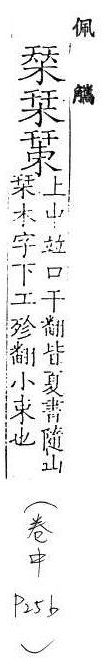 佩觿
栞栞
上中並口干翻皆夏書隨山
栞木字下工殄翻小束也
(卷中 P25b)